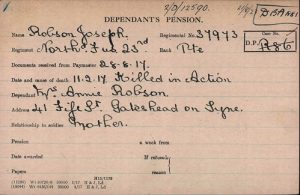 2/D/12590.
DEPENDANT'S PENSION.
Name Robson Joseph. Regimental No. 37973
Regiment North'd Fus 23rd Rank Pte
Case No.
D.P.
Documents received from Paymaster 28.8.17.
Date and cause of death 11.2.17 Killed in Action
Dependant Mrs Annie Robson
Address 41 Fife St. Gateshead on Tyne.
Relationship to soldier Mother.
Pension a week from
Date awarded If refused,
Papers reason